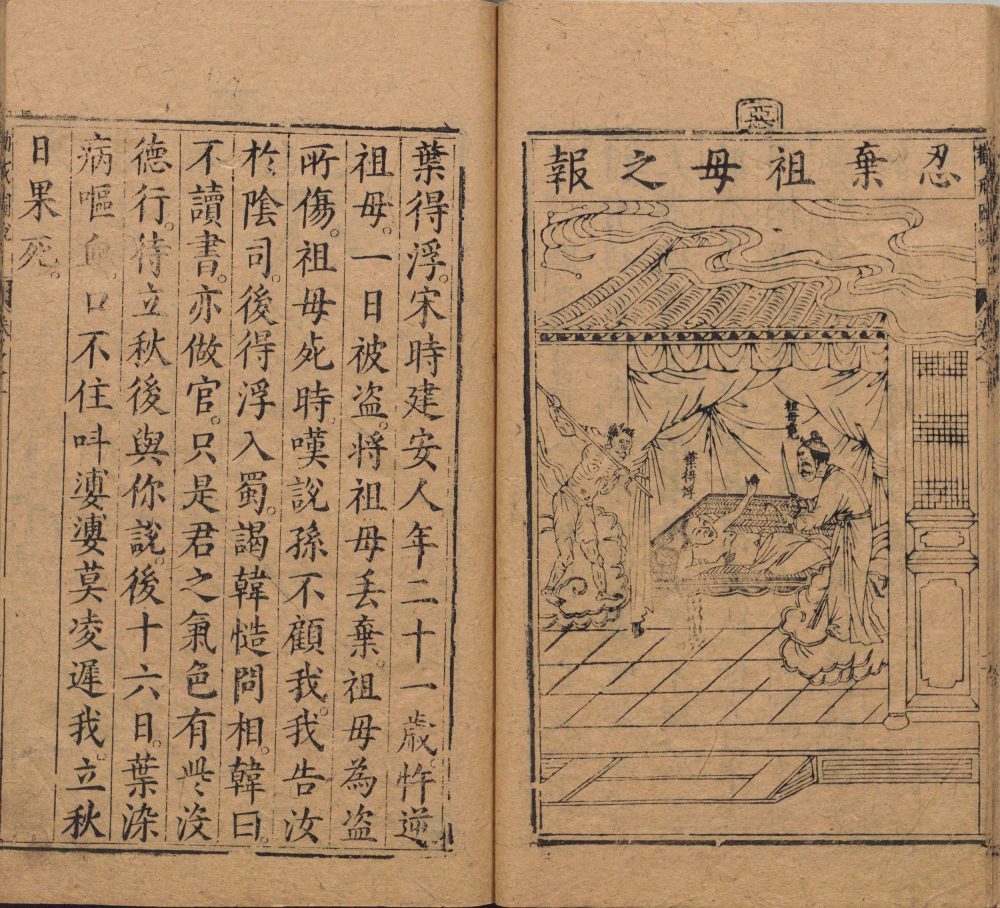 惡
忍棄祖母之報
祖母鬼
葉得浮
葉得浮。宋時建安人年二十一歲。忤逆
祖母。一日被盗。將祖母丢棄。祖母為盗
所傷。祖母死時嘆說孫不顧我。我告汝
於陰司。後得浮入蜀。謁韓慥問相。韓曰。
不讀書。亦做官。只是君之氣色有些没
德行。待立秋後與你說。後十六日。葉染
病嘔血。口不住呌婆婆莫凌遲我。立秋
日果死。